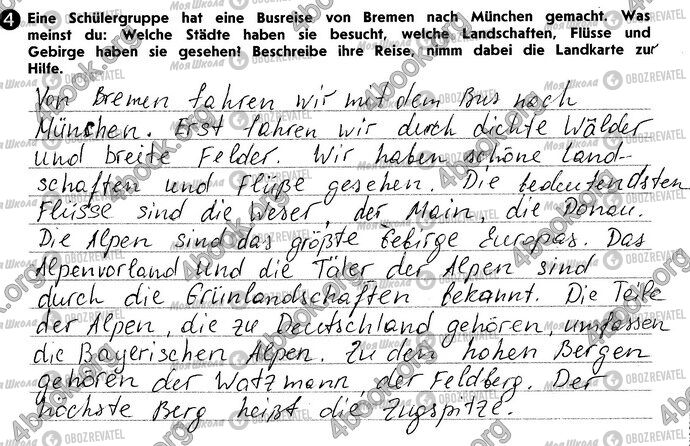 4 Eine Schülergruppe hat eine Busreise von Bremen nach München gemacht. Was
meinst du: Welche Städte haben sie besucht, welche Landschaften, Flüsse und
Gebirge haben sie gesehen? Beschreibe ihre Reise, nimm dabei die Landkarte zur
Hilfe.
Von Bremen fahren wir mit dem Bus nach
München. Erst fahren wir durch dichte Wälder
und breite Felder. Wir haben schöne Land-
schaften und Flüße gesehen. Die bedeutendsten
Flüsse sind die Weser, der Main, die Donau.
Die Alpen sind das größte Gebirge Europas. Das
Alpenvorland und die Täler der Alpen sind
durch die Grünlandschaften bekannt. Die Teile
der Alpen, die zu Deutschland gehören, umfassen
die Bayerischen Alpen. Zu den hohen Bergen
gehören der Watzmann, der Feldberg. Der
höchste Berg heißt die Zugspitze.
4book.org
Моя Школа
OBOZREVATEL